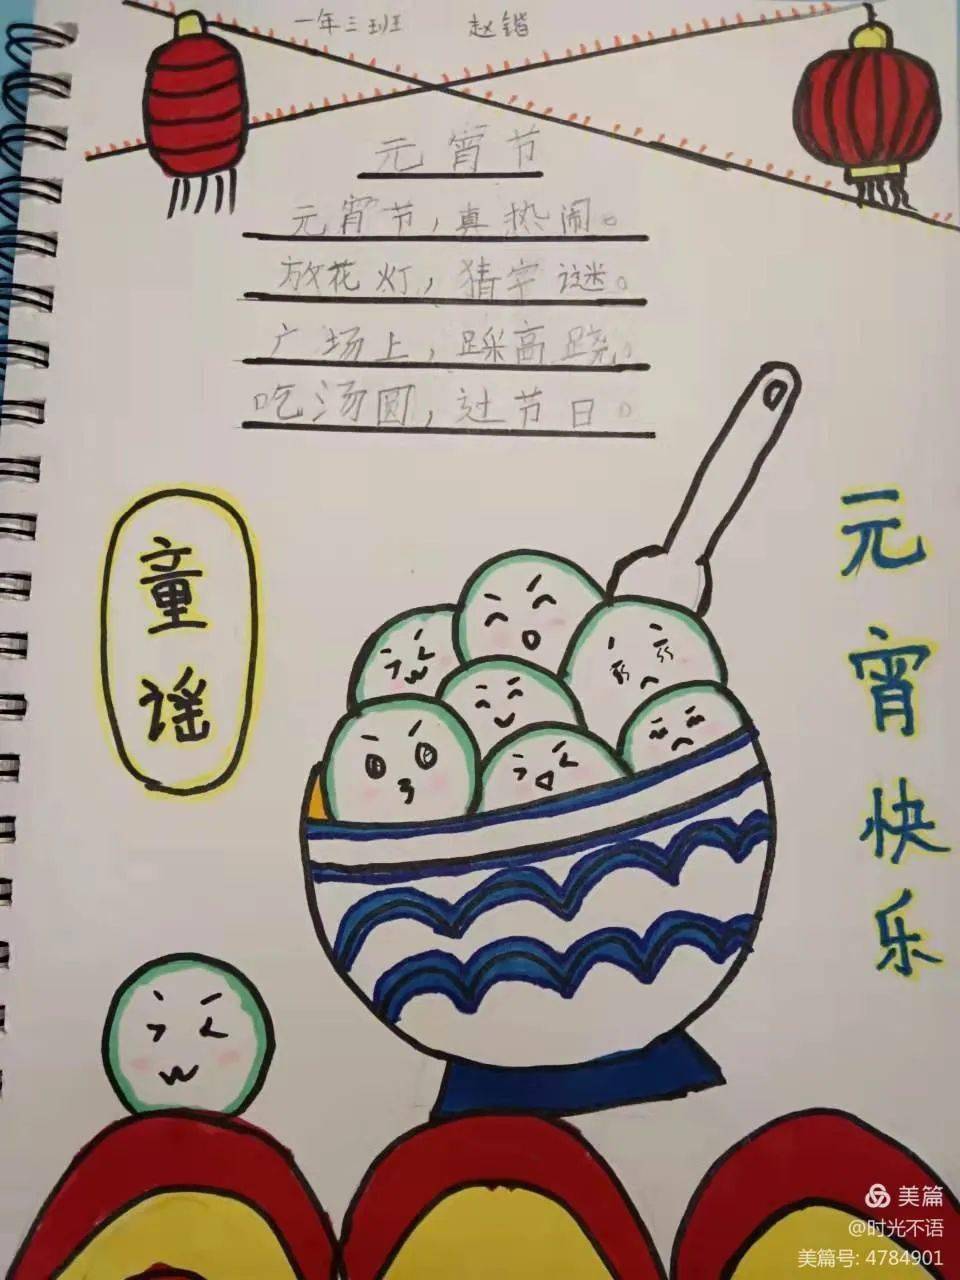 一年三班 赵锴
元宵节
元宵节，真热闹。
放花灯，猜字谜。
广场上，踩高跷。
吃汤圆，过节日。
童谣
元宵快乐
美篇
@时光不语
美篇号: 4784901